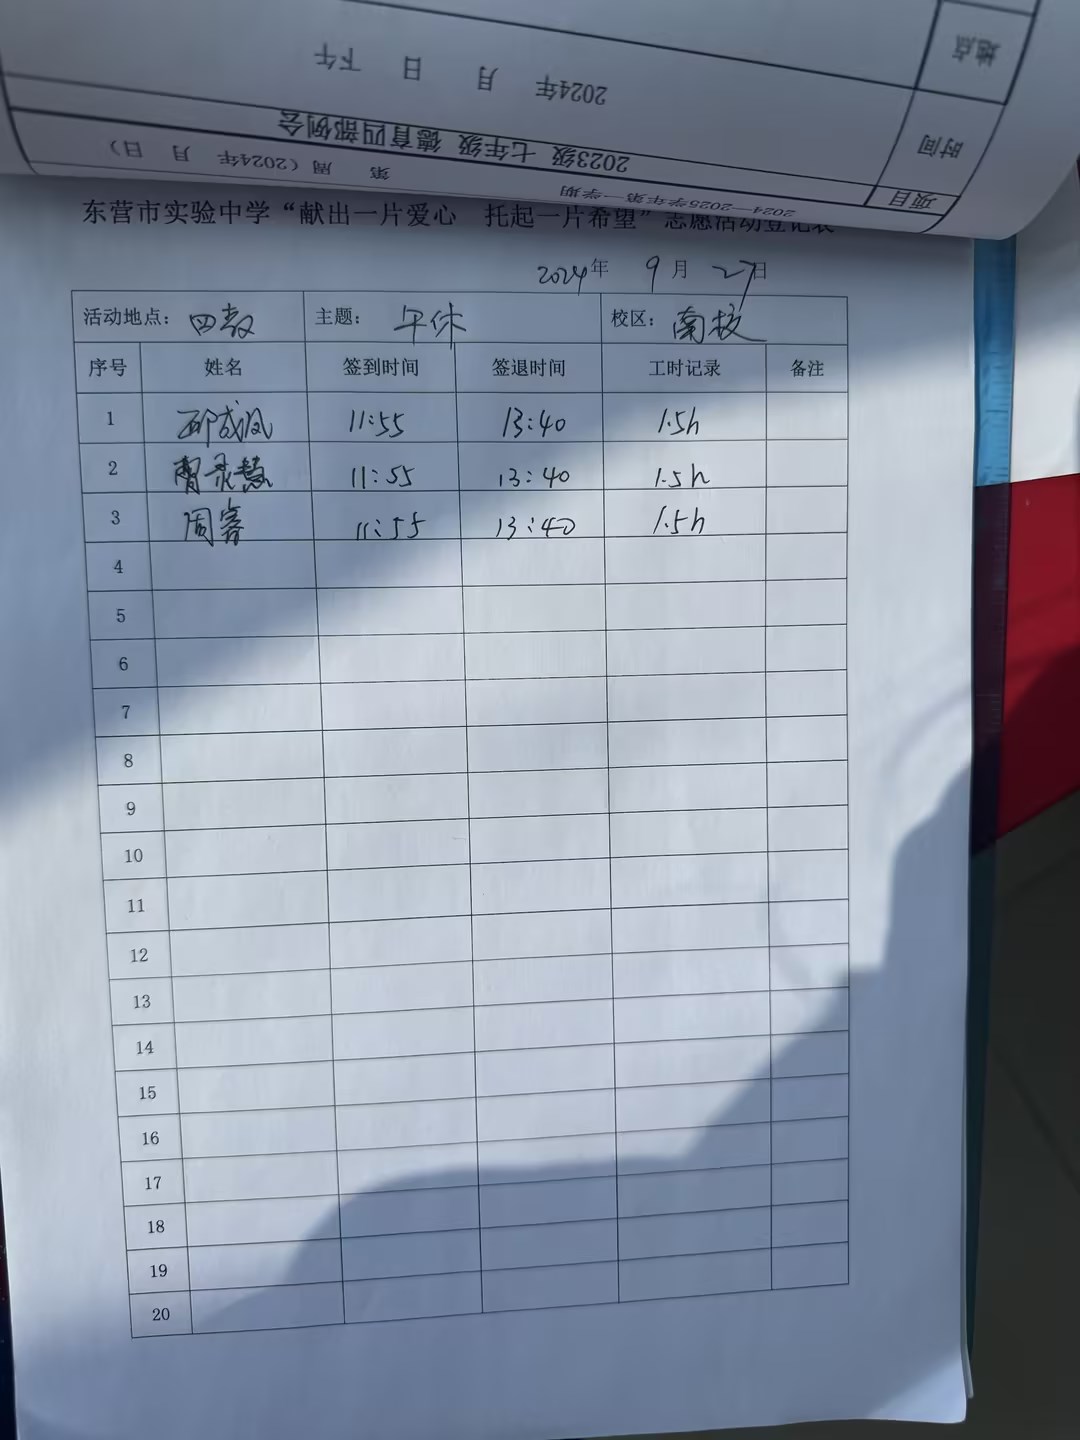 地点
2024年 月 日 下午
时间
2023级 七年级 德育四部例会
第 周（2024年 月 日）
项目
2024—2025学年第一学期
东营市实验中学“献出一片爱心 托起一片希望”志愿活动登记表
2024年 9月 27日
活动地点： 四教 主题： 午休 校区： 南校
序号 姓名 签到时间 签退时间 工时记录 备注
1 邱成凤 11:55 13:40 1.5h
2 11:55 13:40 1.5h
3 周 11:55 13:40 1.5h
4
5
6
7
8
9
10
11
12
13
14
15
16
17
18
19
20